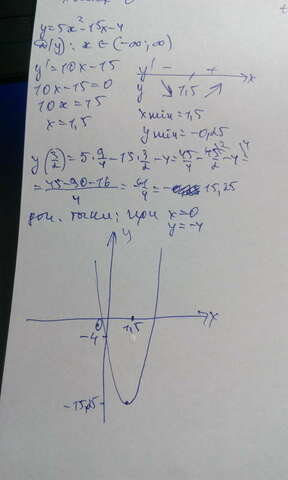 y=5x²-15x-4
D(y): x ∈ (-∞; ∞)
y'=10x-15
10x-15=0
10x=15
x=1,5
y' - + x
y ↘ 1,5 ↗
xmin=1,5
ymin=-0,25
y(3/2)=5·9/4-15·3/2-4=45/4-45/2-4=
=(45-90-16)/4=61/4=-15,25
доп. точки: при x=0
y=-4
y
0 1,5 x
-4
-15,25